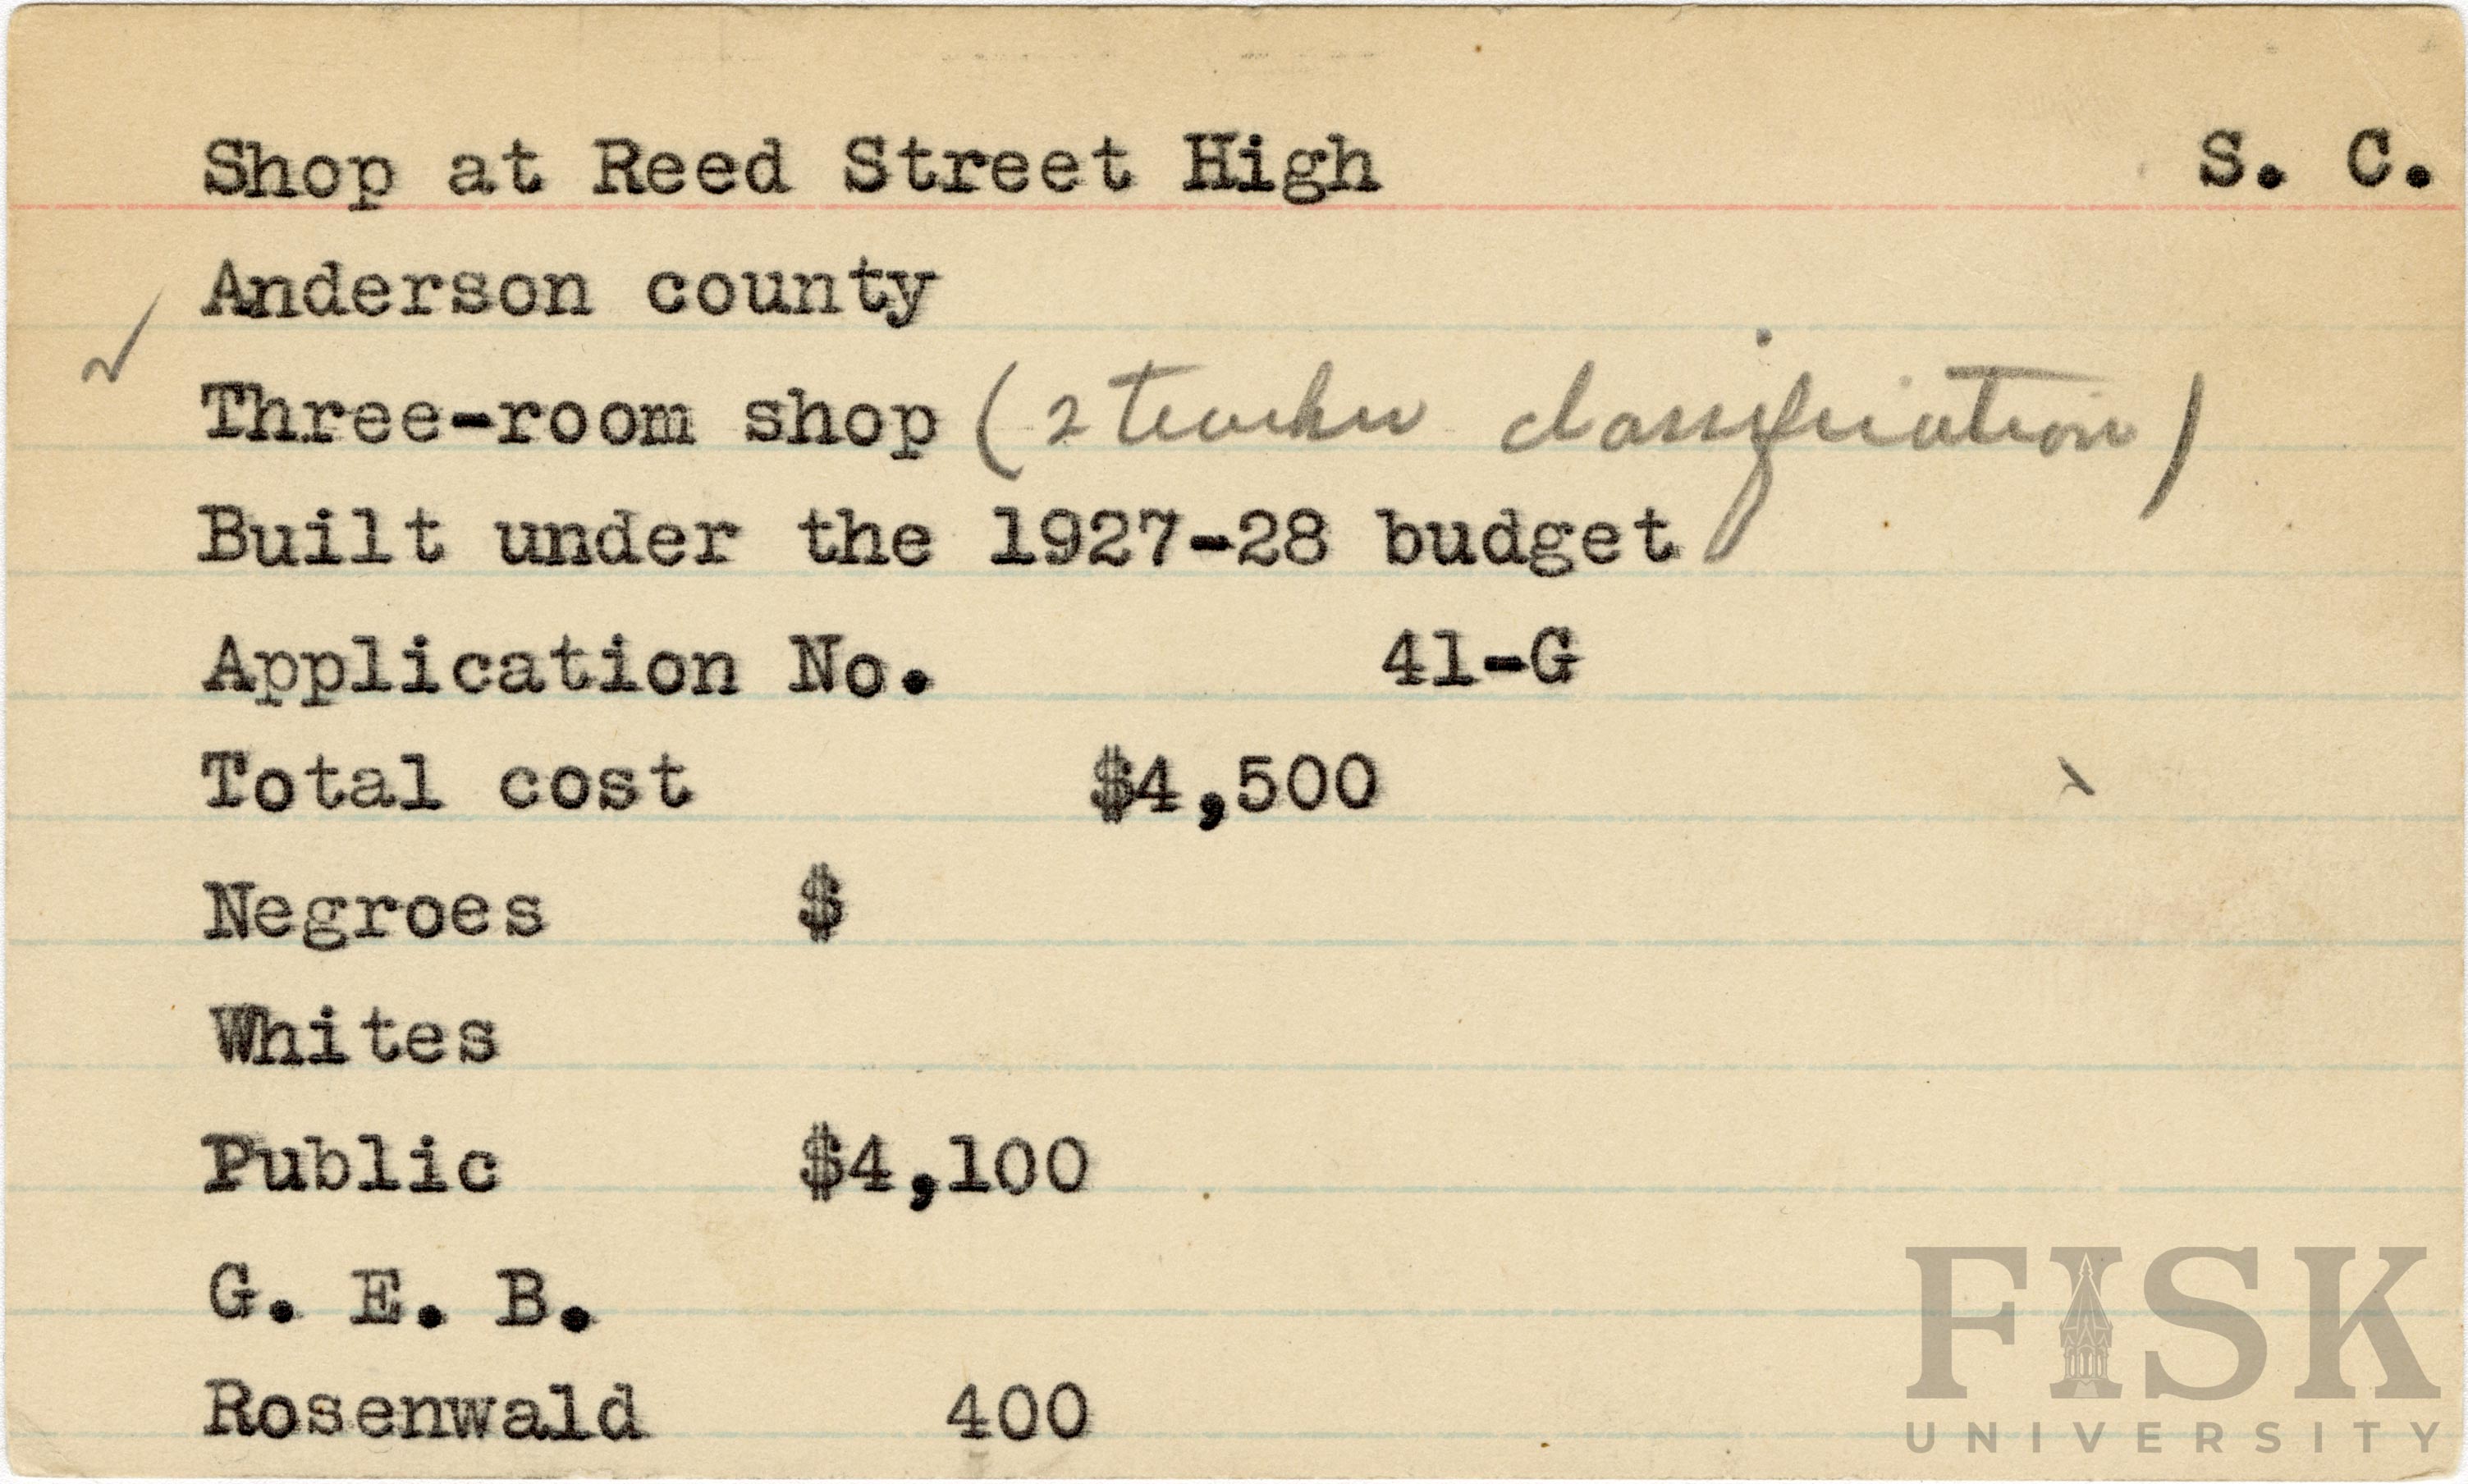 Shop at Reed Street High S. C.
Anderson county
✓
Three-room shop (2 teacher classification)
Built under the 1927-28 budget
Application No. 41-G
Total cost $4,500
Negroes $
Whites
Public $4,100
G. E. B.
Rosenwald 400
FISK
UNIVERSITY